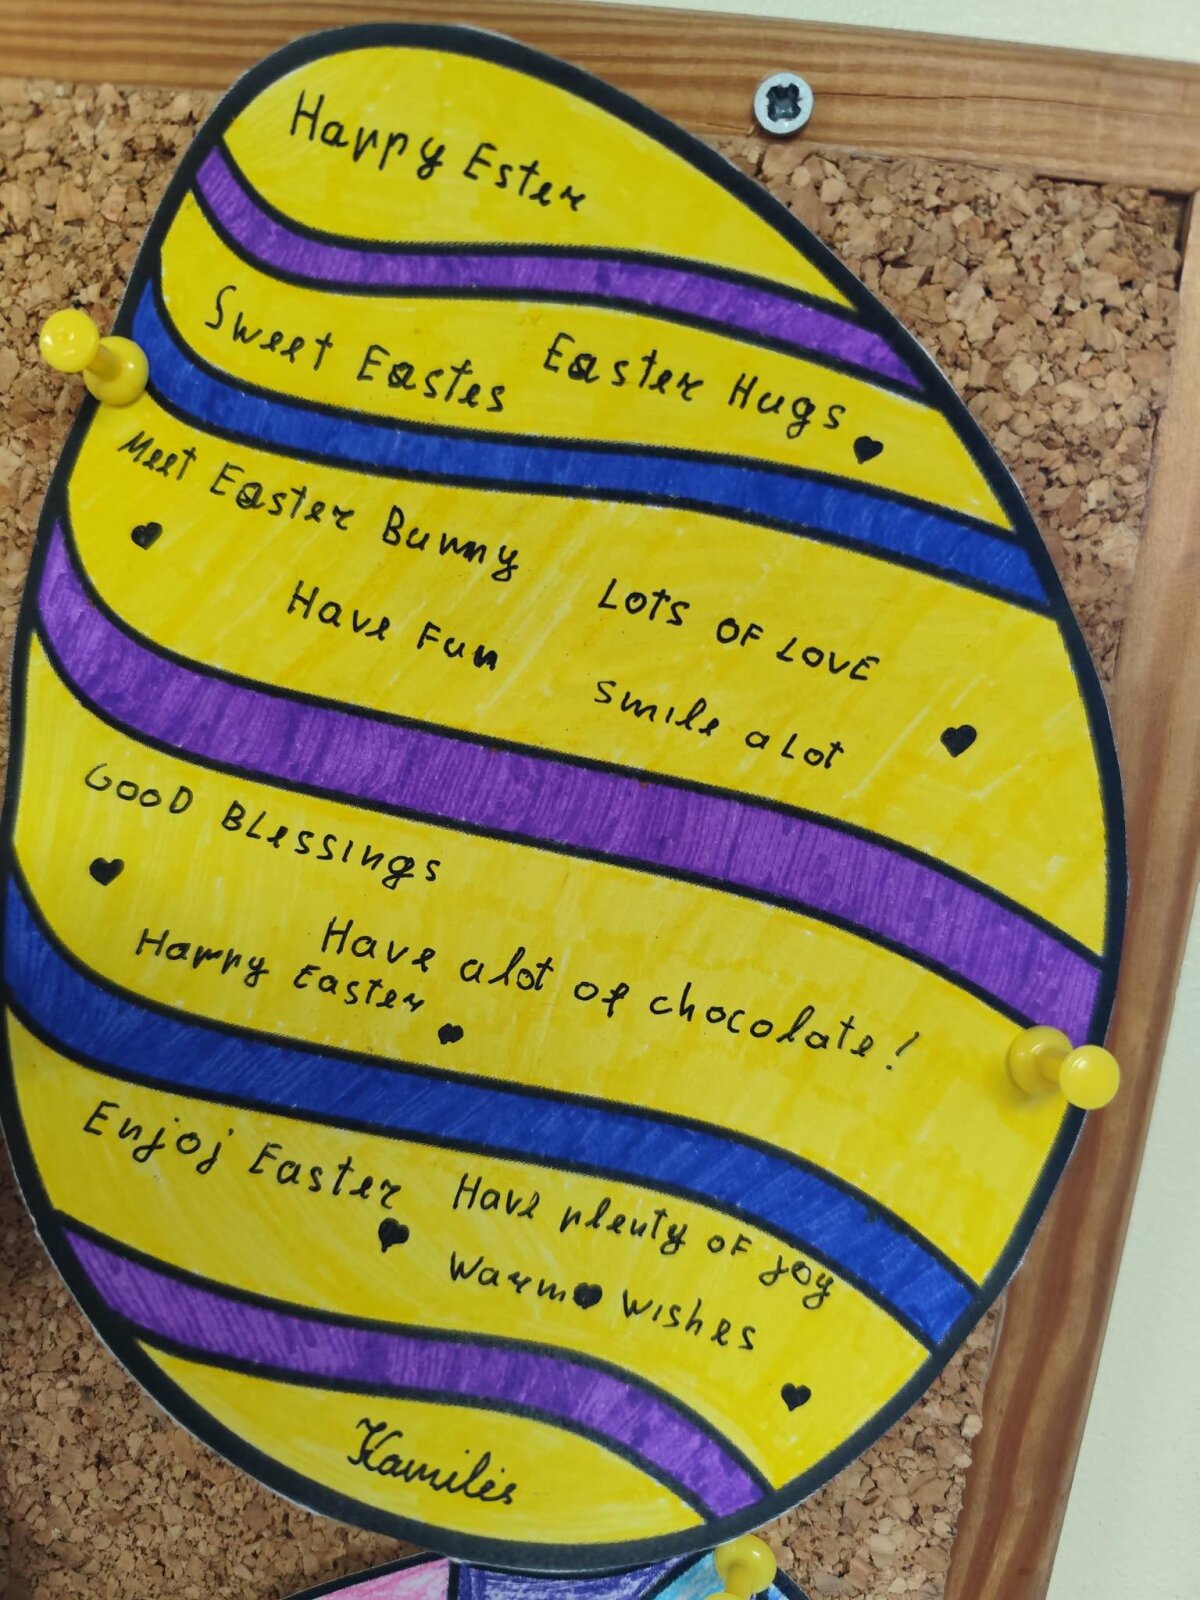 Happy Ester
Sweet Eastes
Easter Hugs
Meet Easter Bunny
Have Fun
LOTS OF LOVE
smile a lot
GOOD BLessings
Have alot of chocolate!
Happy Easter
Enjoj Easter
Have plenty OF joy
Warm wishes
Kamilis